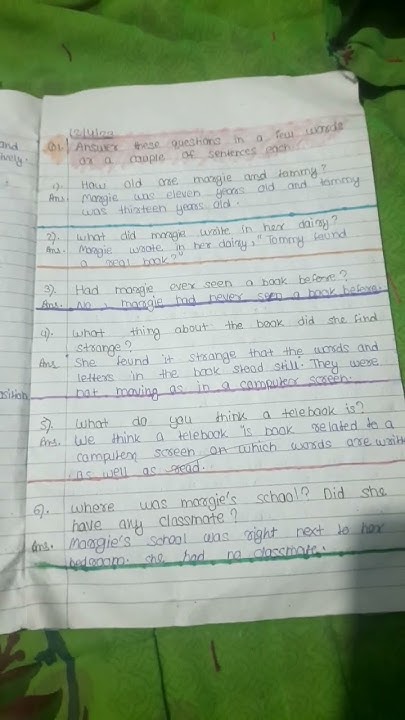 and
ively.
:
12/4/23
Q1. Answer these questions in a few words
or a couple of sentences each.
1). How old are margie and tommy?
Ans. Margie was eleven years old and tommy
was thirteen years old.
2). What did margie wrote in her dairy?
Ans. Margie wrote in her dairy, "Tommy found
a real book?"
3). Had margie ever seen a book before?
Ans. No, margie had never seen a book before.
4). What thing about the book did she find
strange?
Ans. She found it strange that the words and
letters in the book stood still. They were
not moving as in a computer screen.
osition
5). What do you think a telebook is?
Ans. We think a telebook is book related to a
computer screen on which words are writt
as well as read.
6). Where was margie's school? Did she
have any classmate?
Ans. Margie's school was right next to her
bedroom. she had no classmate.